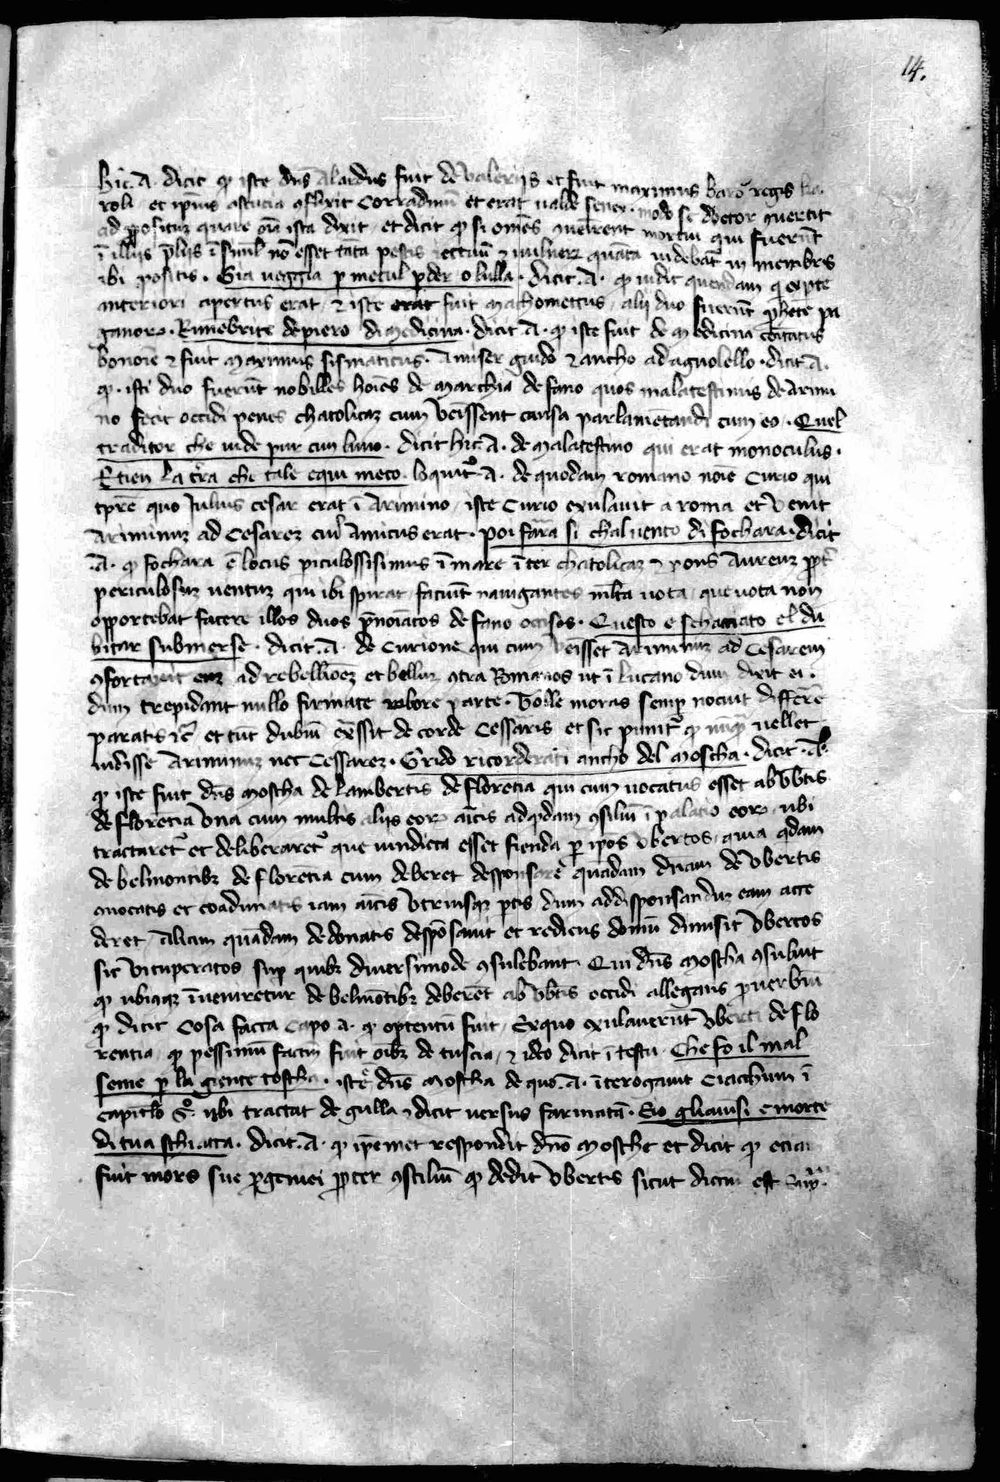 14.
hic. A. dicit q̄ iste dn̄s Alardus fuit de Valeriis et fuit maximus baro regis ka
roli et ip̄ius astucia 9flixit Corradinū et erat valde senex. modo se doctor 9vertit
ad p̄positum quare oīa ista dixit et dicit q̄ si om̄es mortui qui fuerūt
ī illis p̄liis ī simul nō esset tāta pestis et vulnerū quāta videbat᷑ in membris
ibi positis. Gia veggia per meçul perder o lulla. dicit. A. q̄ vidit quendam q̄ ex p̄te
anteriori apertus erat et iste fuit Machomettus, alii duo fuerūt p̄hete pa
ganorꝝ. Rimebrite de piero di medicina. dicit A. q̄ iste fuit de Medicina comitatus
bononie et fuit maximus sismaticus. A miser guido et ancho ad agnolello. dicit. A.
q̄ isti duo fuerūt nobilles hoīes de marchia de fano quos malatestinus de Arimi
no fecit occidi penes chatolicaz cum venissent causa parlamētandi cum eo. Quel
traditor che vide pur cun luno. dicit hic. A. de Malatestino qui erat monoculus.
E tien la terra che tale equi meco. loquit᷑. A. de quodam romano noīe Curio qui
tp̄re quo Julius cesar erat ī Arimino, iste Curio exulavit a roma et venit
Ariminuz ad Cesarez cui᷑ amicus erat. poi fara si chal vento di fochara. dicit
A. q̄ fochara ē locus p̄iculossisimus ī mare īter chatolicaz et pons Aureuz pp̄t
periculosuz ventuz qui ibi spirat faciūt navigantes mīta vota, que vota non
opportebat facere illos duos p̄noīatos de fano occisos. Questo e schaciato el du
bitar submerse. dicit. A. de Curione qui cum venisset Ariminuz ad Cesarem
9fortavit eū ad rebelliōez et belluz 9tra Romanos ut ī Lucano dum dixit ei.
dum trepidant nullo firmate robore parte. Tolle moras semp nocuit differre
paratis etc̄ et tūc dubiū exssit de corde Cessaris et sic punit᷑ q̄ nūq̄ vellet
vidisse Ariminuz nec Cessarez. Grido ricorderati ancho del Moscha. dicit. A.
q̄ iste fuit dn̄s Moscha de lambertis de florētia qui cum vocatus esset ab Ubtis
de florētia una cum multis aliis eorꝝ amicis ad q̄dam 9siliū ī palatio eorꝝ ubi
tractaret᷑ et deliberaret᷑ que vindicta esset fienda p̄ ip̄os Ubertos, quia q̄dam
de belmontibꝫ de florētia cum deberet desponsare quādam dn̄am de Ubertis
9vocatis et coadunatis iam amicis utriusq̄ p̄tis dum ad disponsanduz eam acce
deret, aliam quādam de donatis despōsavit et rediens domū dimisit Ubertos
sic vituperatos sup quibꝫ diversimode 9sulebant. Qui dn̄s Moscha 9suluit
q̄ ubicūq̄ īveniretur de belmōtibꝫ deberet ab Ubtis occidi allegans p̄verbiū
q̄ dicit Cosa facta capo a. q̄ optentū fuit, Ex quo exulaverūt Uberti de flo
rentia, q̄ pessimū factū fuit oībꝫ de tuscia, et ideo dicit ī testu, Che fo il mal
seme p̄ la giente toscha. iste dn̄s Moscha de quo. A. īterogavit Ciacchum ī
capitl̄o 6º ubi tractat de gulla et dicit versus farinatā. Eio gliaiunsi e morte
di tua schiatta. dicit. A. q̄ ip̄emet respondit dn̄o Mosche et dicit q̄ etiam
fuit mors sue p̄geniei p̄pter 9siliuz q̄ dedit Ubertis sicut dictum est sup̄.